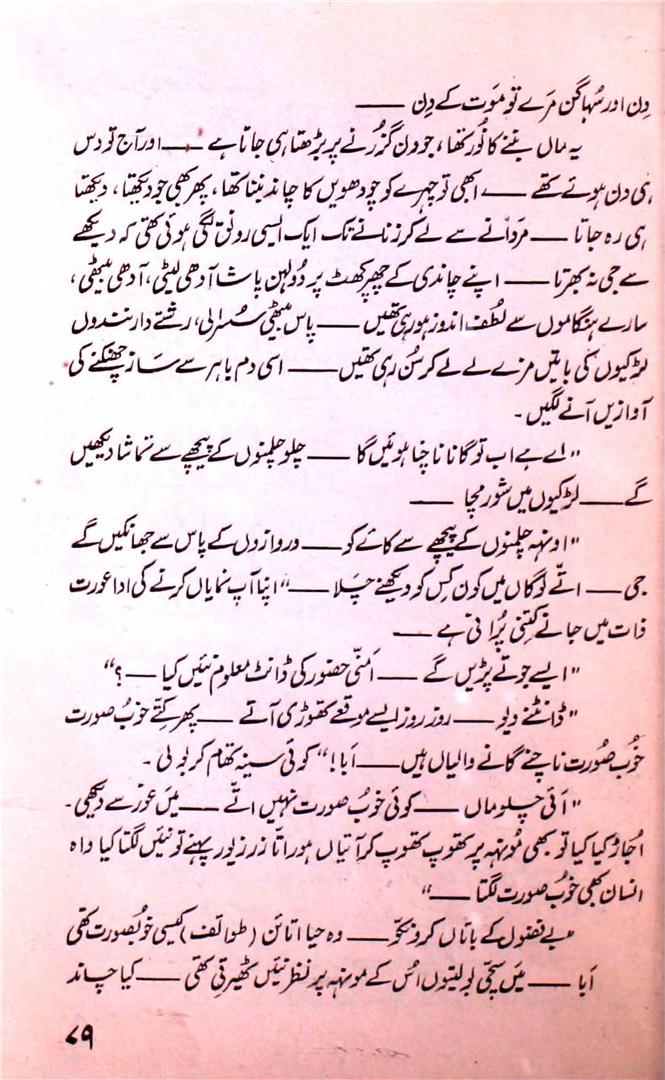 دِن اور سُہاگن مَرے تو مَوت کے دِن ——
یہ ماں بننے کا نُور تھا، جو دن گزُرنے پر بڑھتا ہی جاتا ہے —— اور آج تو دس
ہی دن ہوئے تھے —— ابھی تو چہرے کو چودھویں کا چاند بننا تھا، پھر بھی جو دیکھتا، دیکھتا
ہی رہ جاتا —— مردانے سے لے کر زنانے تک ایک ایسی رونق لگی ہوئی تھی کہ دیکھے
سے جی نہ بھرتا —— اپنے چاندی کے چھپر کھٹ پر دُولہن پاشا آدھی لیٹی، آدھی بیٹھی،
سارے ہنگاموں سے لُطف اندوز ہو رہی تھیں —— پاس بیٹھی سُسرالی، رشتے دار نندوں
لڑکیوں کی باتیں مزے لے لے کر سُن رہی تھیں —— اسی دم باہر سے سَاز چھنکنے کی
آوازیں آنے لگیں۔
"اے ہے اب تو گانا ناچنا ہوئیں گا —— چلو چلمنوں کے پیچھے سے تماشا دیکھیں
گے —— لڑکیوں میں شور مچا ——
"اونہہ چلمنوں کے پیچھے سے کائے کو —— دروازوں کے پاس سے جھانکیں گے
جی —— اتّے لوگاں میں کون کِس کو دیکھنے چَلا ——" اپنا آپ نمایاں کرنے کی ادا عورت
ذات میں جانے کِتنی پُرانی ہے ——
"ایسے جوتے پڑیں گے —— اَمنّی حضور کی ڈانٹ معلوم نئیں کیا ——؟"
"ڈانٹنے دیو —— روز روز ایسے موقعے تھوڑی آتے —— پھر کِتّے خوبُ صورت
خوُب صُورت ناچنے گانے والیاں ہیں —— اَبا!" کوئی سینہ تھام کر بولی۔
"اَئی چلو ماں —— کوئی خوُب صورت نہیں اتّے —— میَں غور سے دیکھی۔
اُجاڑ کیا کیا تو بھی موُنہہ پر تھوپ تھوپ کر آتیاں ہور اتّا زر زیور پہنے تو نئیں لگتا کیا واہ
انسان بھی خوُب صورت لگتا ——"
"بے فضول کے باتاں کرو نکّو —— وہ حیاتاں (طوائف) کیسی خوبُصورت تھی
اَبا —— میَں سچّی بولیتوں اُس کے مونہہ پر نظر نئیں ٹھیرتی تھی —— کیا چاند
۷۹